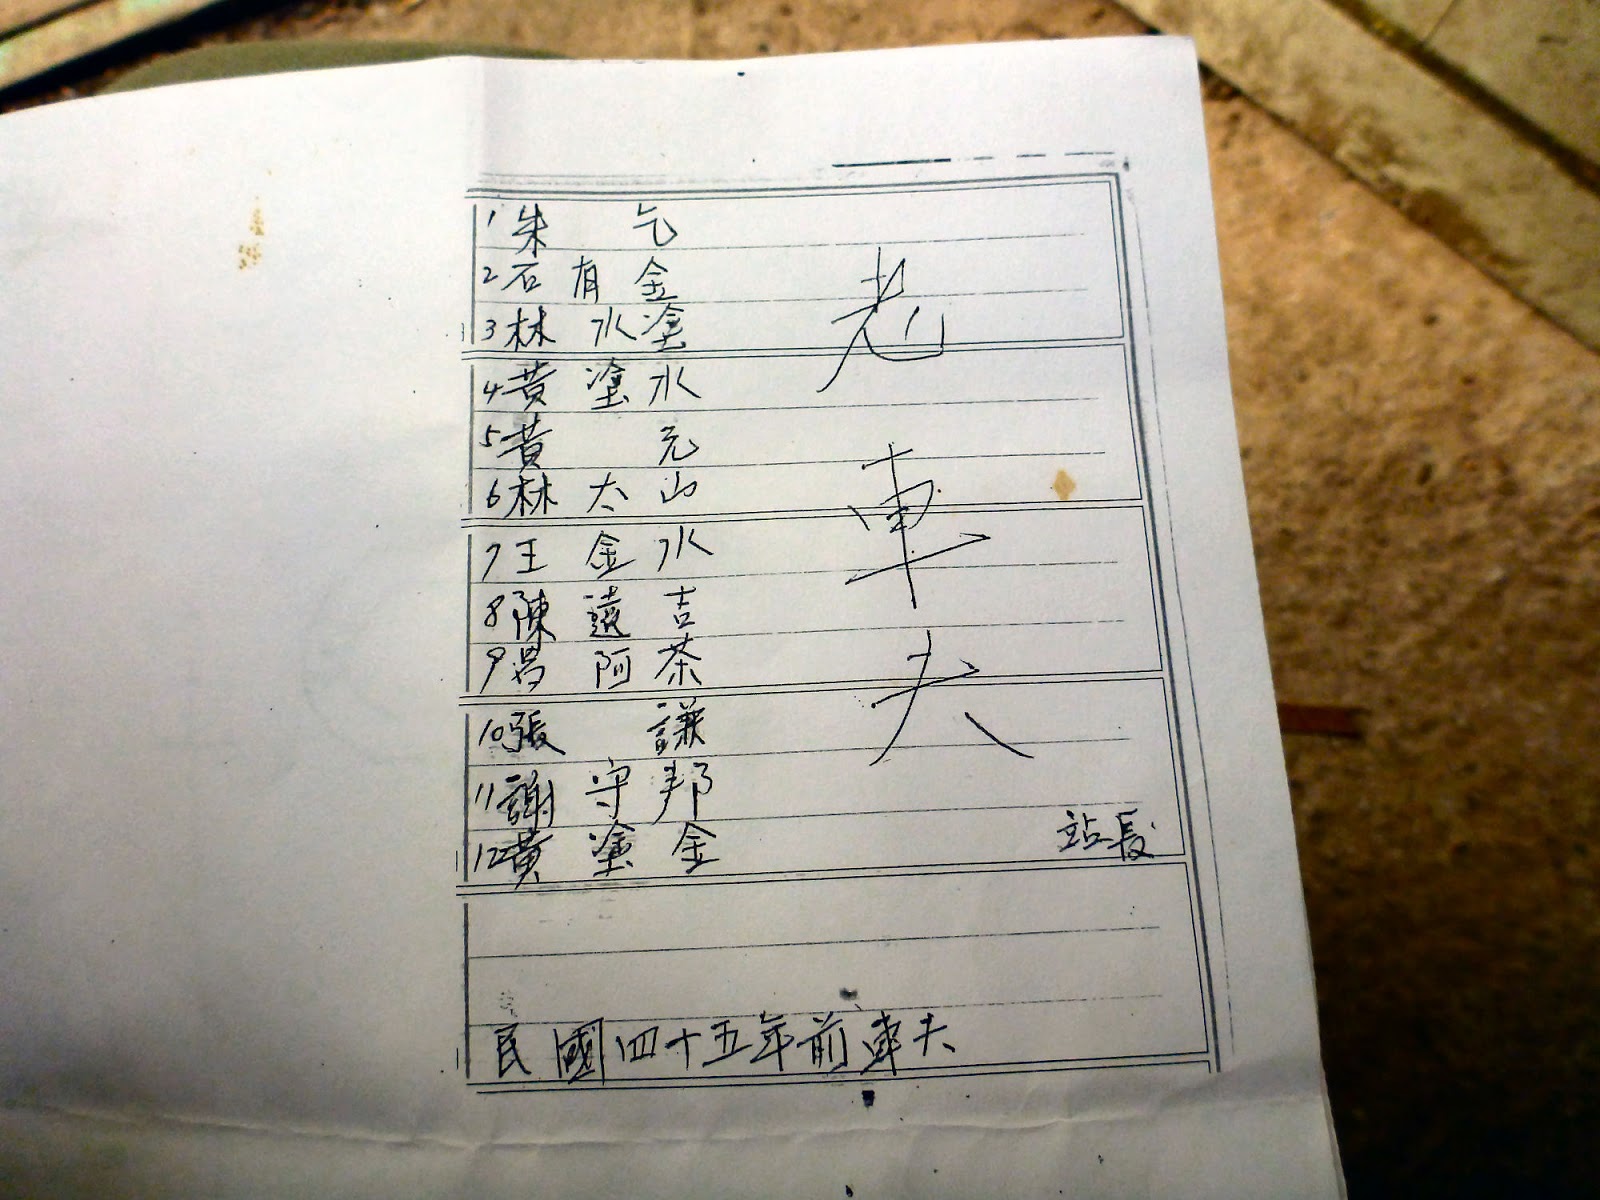 老車夫
1 朱 乞
2 石有金
3 林水塗
4 黃塗水
5 黃 元
6 林太山
7 王金水
8 陳遠吉
9 呂阿茶
10 張 謙
11 謝守邦
12 黃塗金 站長
民國四十五年前車夫